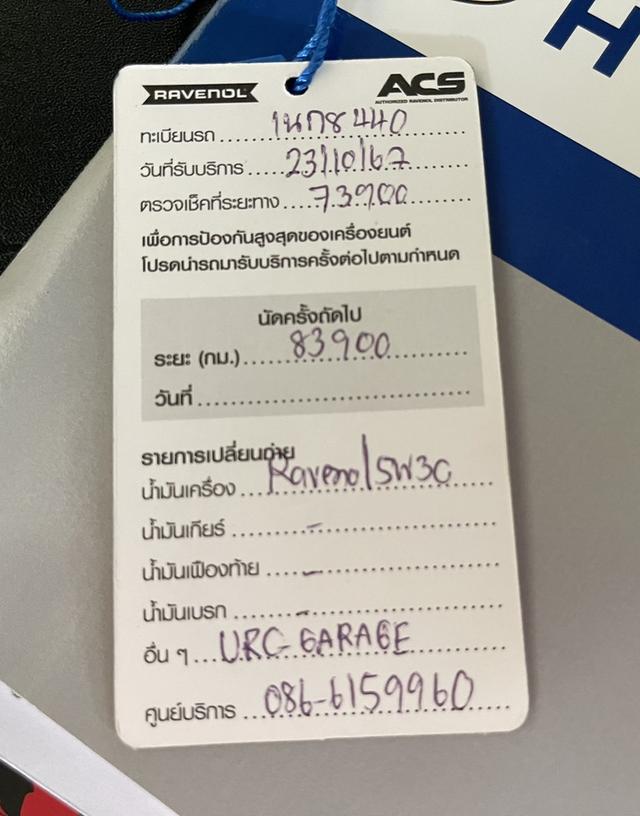 RAVENOL
ACS
AUTHORIZED RAVENOL DISTRIBUTOR
ทะเบียนรถ 1นก8440
วันที่รับบริการ 23/10/67
ตรวจเช็คที่ระยะทาง 73900
เพื่อการป้องกันสูงสุดของเครื่องยนต์
โปรดนำรถมารับบริการครั้งต่อไปตามกำหนด
นัดครั้งถัดไป
ระยะ (กม.) 83900
วันที่
รายการเปลี่ยนถ่าย
น้ำมันเครื่อง Ravenol 5W30
น้ำมันเกียร์ -
น้ำมันเฟืองท้าย -
น้ำมันเบรก -
อื่น ๆ URC GARAGE
ศูนย์บริการ 086-6159960
H